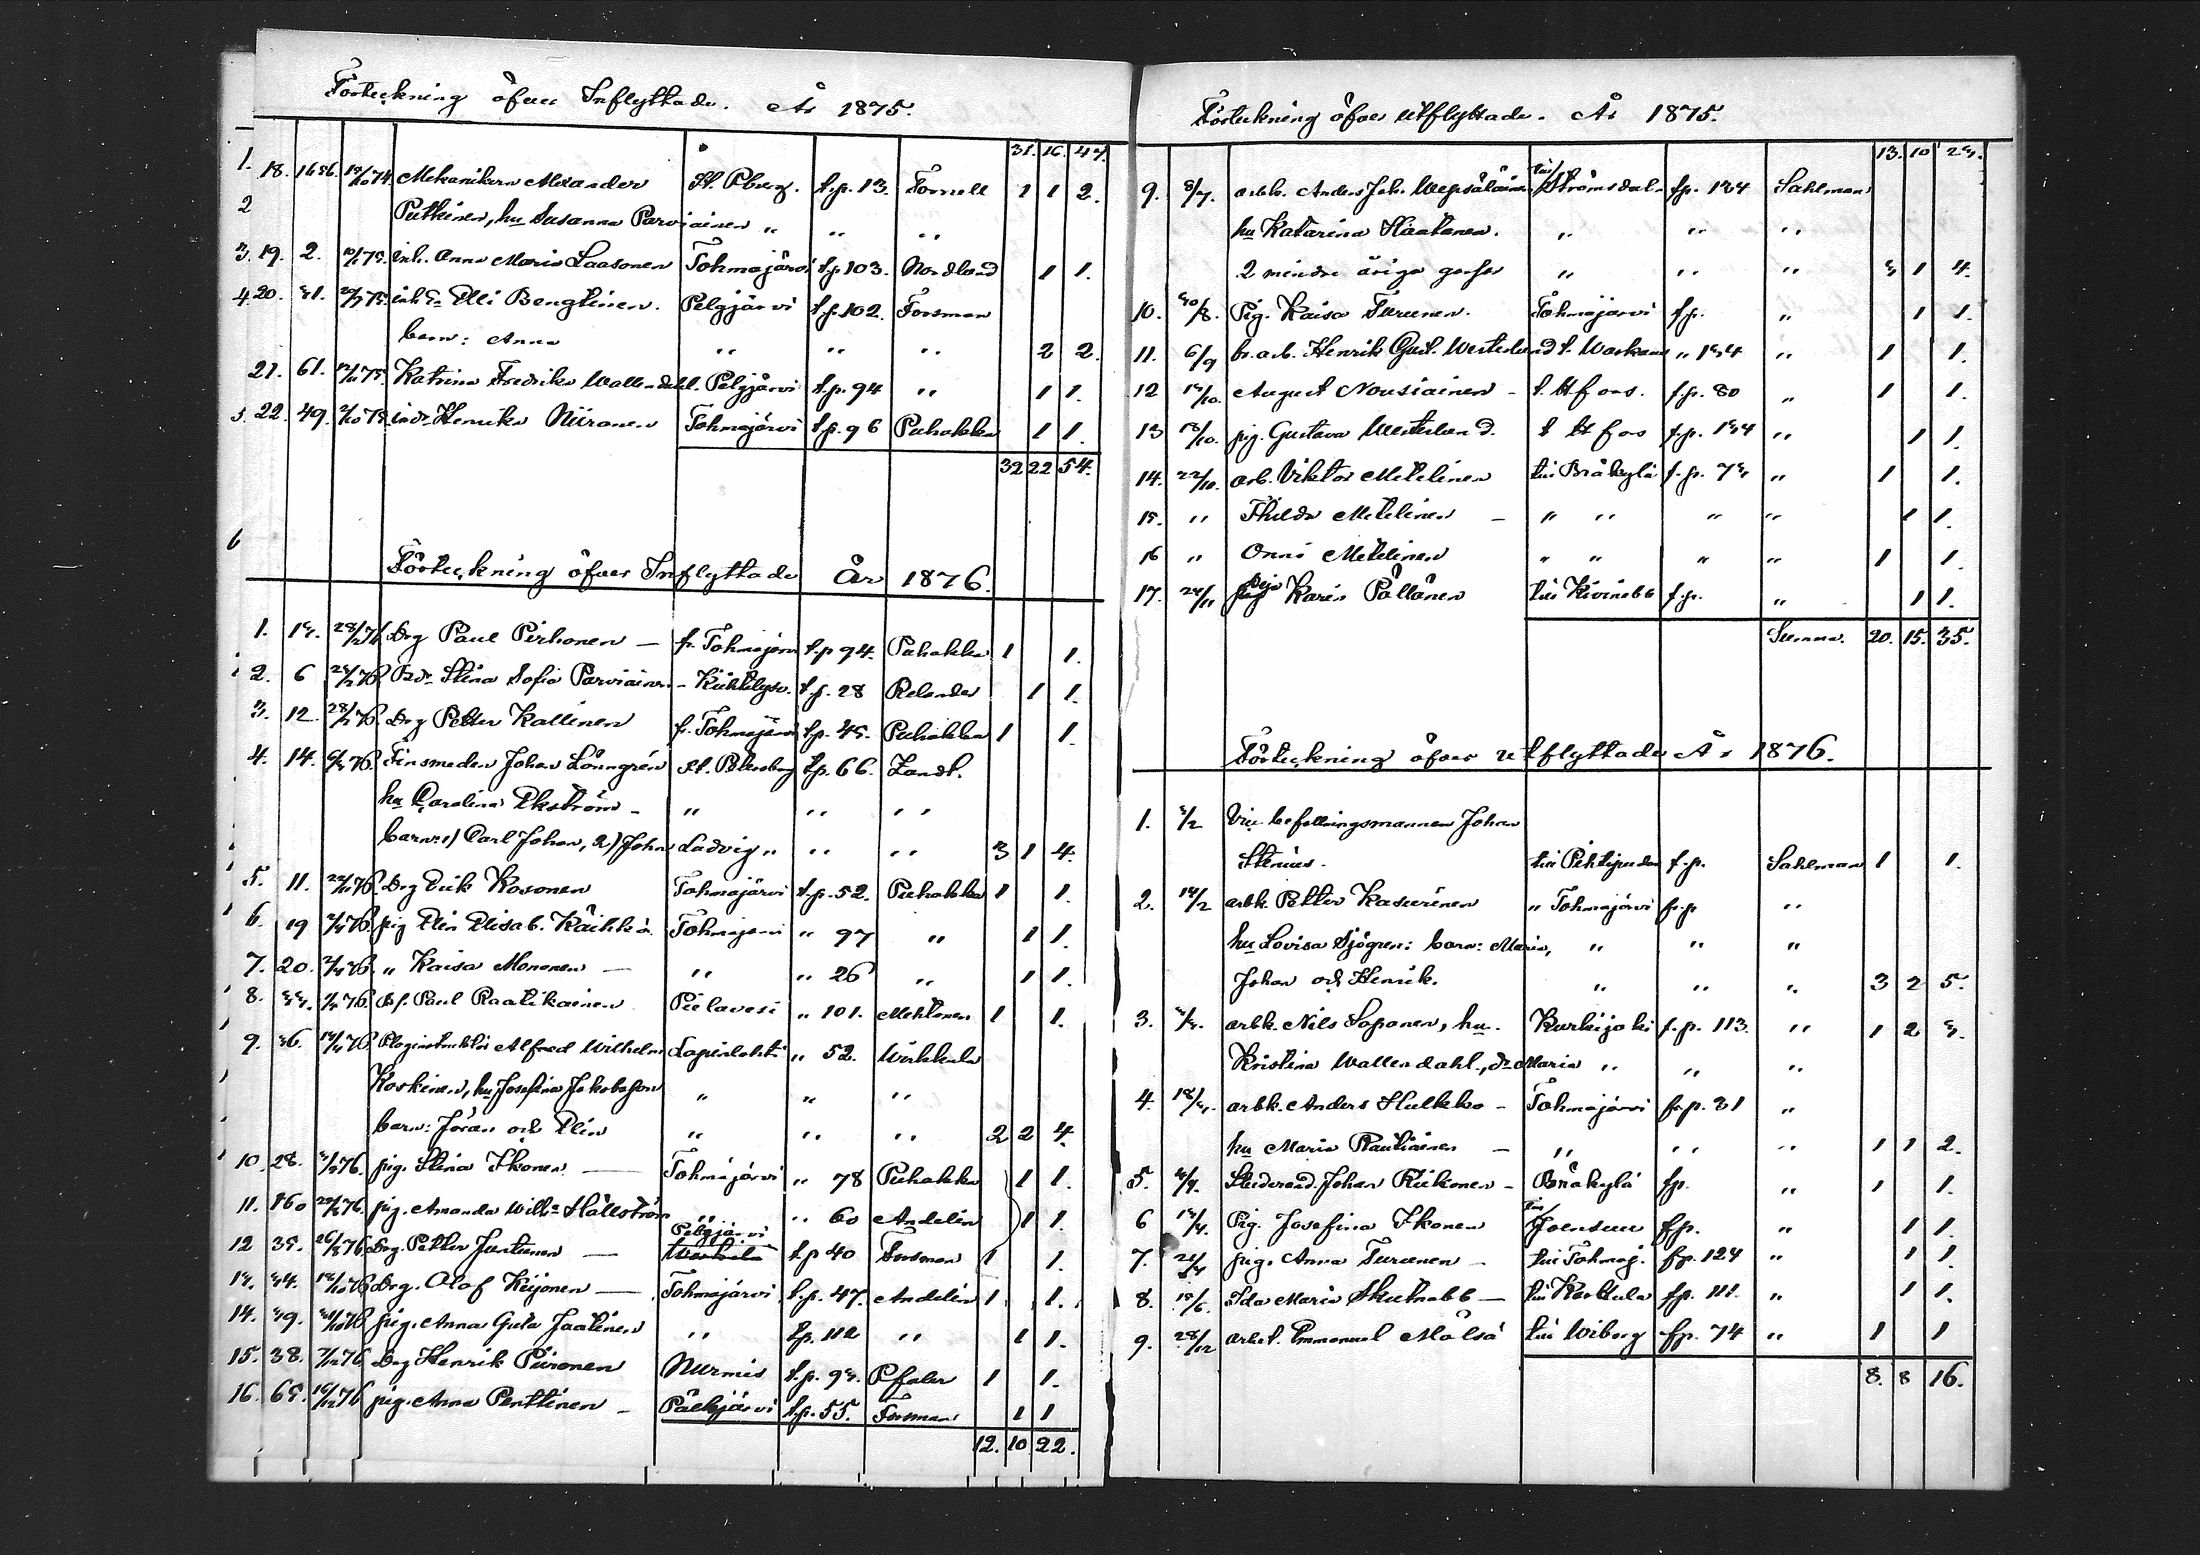 Förteckning öfver Inflyttade. År 1875.
31. 16. 47.
1. 18. 1686. 15/10 74. Mekanikern Alexander St. Pburg. t.p. 13. Forsell 1 1 2.
2 Putkinen, hu Susanna Parviainen " " "
3. 19. 2. 75. inh. Anna Maria Laasonen Tohmajärvi t.p. 103. Nordlund 1 1.
4. 20. 31. 75. Elli Bengtinen. Pelgjärvi t.p. 102. Forsman
barn: Anna " " " 2 2.
21. 61. 75. Katrina Fredrika Wallendahl. Pelgjärvi t.p. 94 " 1 1.
5. 22. 49. 75. Henrika Niiranen Tohmajärvi t.p. 96 Puhakka 1 1.
32 22 54.
6
Förteckning öfver Inflyttade År 1876.
1. 13. 28/2 76 Drg Paul Pirhonen — fr. Tohmajärvi t.p. 94. Puhakka 1 1.
2. 6 76 Stina Sofia Parviainen - Kiihtelysv. t.p. 28 Relander 1 1.
3. 12. 76. Drg Petter Kallinen fr. Tohmajärvi t.p. 45. Puhakka 1 1.
4. 14. 76. Finsmeden Johan Lönngrén St. Petersburg t.p. 66. Zandt.
hu Carolina Ekström - " " "
barn: 1) Carl Johan, 2) John Ludvig " " " 3 1 4.
5. 11. 76. Drg Erik Kosonen Tohmajärvi t.p. 52. Puhakka 1 1.
6. 19 76. pig Elin Elisab. Tohmajärvi " 97 " 1 1.
7. 20. 76. " Kaisa Mononen — " " 26 " 1 1.
8. 33. 76. Paul Raatikainen Pielavesi " 101. Mehtonen 1 1.
9. 36. 76. Ploginstruktör Alfred Wilhelm Lapinlahti " 52. Wirkkula
Koskinen, hu Josefina Jakobsson " " "
barn: Jöran och Elin " " " 2 2 4.
10. 28. 76. pig. Stina Ikonen — Tohmajärvi " 78 Puhakka 1 1.
11. 160 76. pig. Amanda Willh:a Hällström " " 60 Andelin 1 1.
Pelgjärvi
12 35. 76 Drg. Petter Juntunen — t.p. 40 Forsman 1 1.
13. 34. 76 Drg. Olof Keijonen — Tohmajärvi t.p. 47. Andelin 1 1.
14. 39. 76 pig. Anna Greta Jaatinen " t.p. 112 " 1 1.
15. 38. 76 Drg Henrik Piironen Nurmis t.p. 93. Pfaler 1 1.
16. 65. 76 pig. Anna Penttinen - Pälkjärvi t.p. 55. Forsman 1 1
12. 10 22.
Förteckning öfver Utflyttade. År 1875.
13. 10 23.
9. 8/7. arbk. Anders Joh. Wepsäläinen till Strömsdal fp. 134 Sahlman
hu Katarina Haatanen. " " "
2 mindre åriga gossar " " " 3 1 4.
10. 30/8. Pig. Kaisa Turunen. Tohmajärvi fp. " 1 1.
11. 6/9 Henrik Gust. Westerlund t. Warkaus " 134 " 1 1.
12 /10. August Nousiainen - t. Hfors. f.p. 80 " 1 1.
13 /10. pig. Gustava Westerlund. t Hfors f.p. 134 " 1 1.
14. 22/10. arb. Viktor Miettinen till Bråkylä f.p. 73 " 1 1.
15. " Thilda Miettinen - " " " " 1 1.
16 " Onni Miettinen " " " " 1 1.
17. 24/11 pig Karin Pällänen till Kivinebb f.p. " 1 1.
Summa. 20. 15. 35.
Förteckning öfver utflyttade År 1876.
1. 3/2 Vice befallningsmannen Johan
Stenius. till Pihtipudas f.p. Sahlman 1 1.
2. 14/2 arbk. Petter Kasurinen " Tohmajärvi f.p "
hu Lovisa Sjögren: barn: Maria, " " "
Johan och Henrik. " " " 3 2 5.
3. 3/3. arbk. Nils Soponen, hu. Kurkijoki f.p. 113. " 1 2 3.
Kristina Wallendahl, dr Maria " " "
4. 18/3. arbk. Anders Hulkko - Tohmajärvi f.p. 81 "
hu Maria Rautiainen - " " " 1 1 2.
5. 4/4. Studerand. Johan Riikonen - Bråkylä fp. " 1 1.
6 /4. Pig. Josefina Ikonen till Joensuu fp. " 1 1.
7. 24/4 pig. Anna Turunen - till Tohmaj. fp. 124 " 1 1.
8. 15/6. Ida Maria Skutnabb — till Karttula fp. 111. " 1 1.
9. 28/12 arbet. Emmanuel Mälsä till Wiborg fp. 74 " 1 1
8. 8 16.